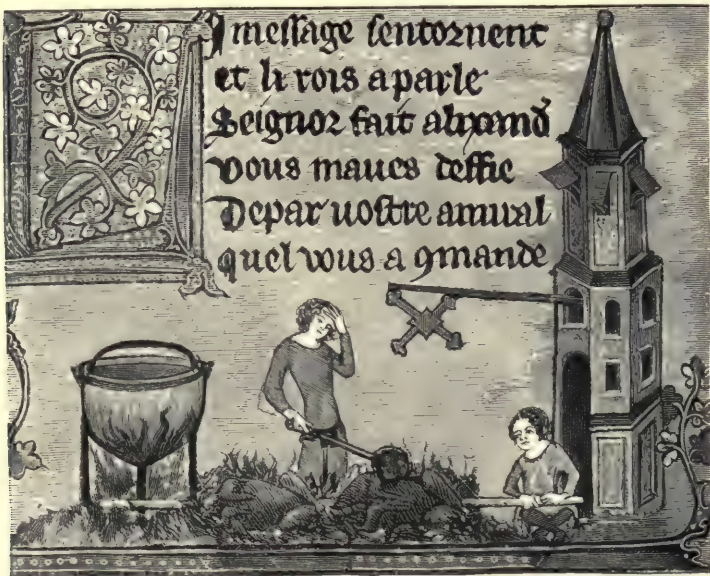 LI message sentornent
et li rois a parle
Seignor fait alixand
vous maues deffie
De par uostre amiral
quel vous a ꝯmande